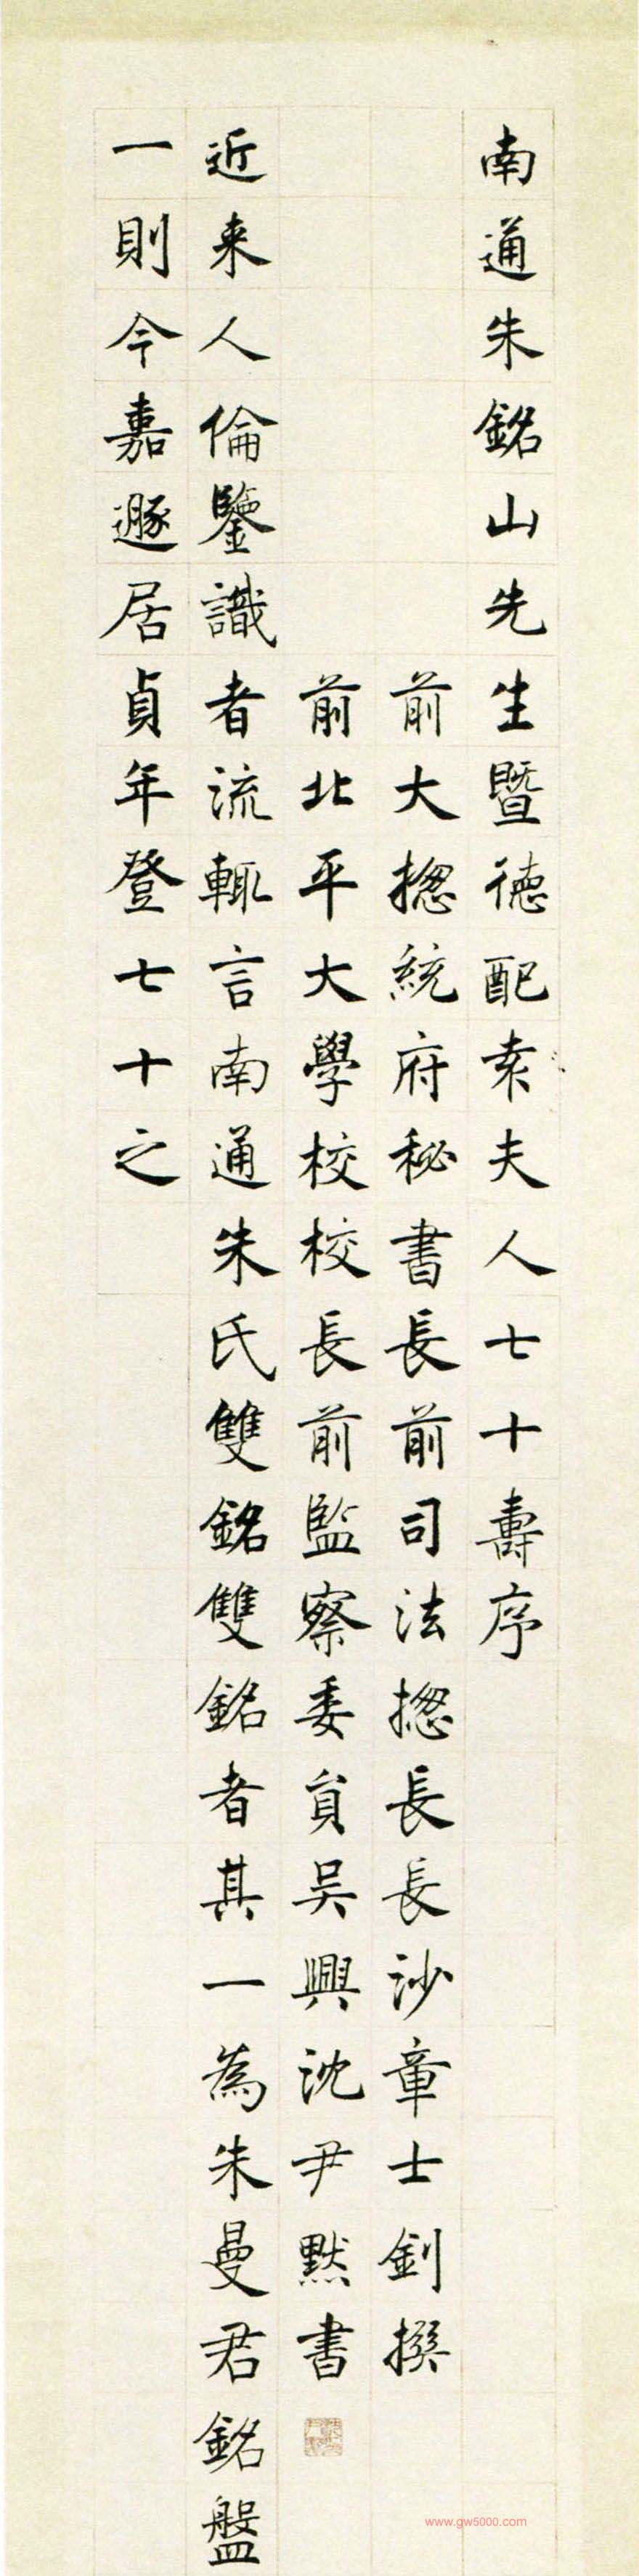 南通朱銘山先生暨德配袁夫人七十壽序
前大揔統府秘書長前司法揔長長沙章士釗撰
前北平大學校校長前監察委員吳興沈尹默書
近来人倫鑒識者流輒言南通朱氏雙銘雙銘者其一為朱曼君銘盤
一則今嘉遯居貞年登七十之
www.gw5000.com